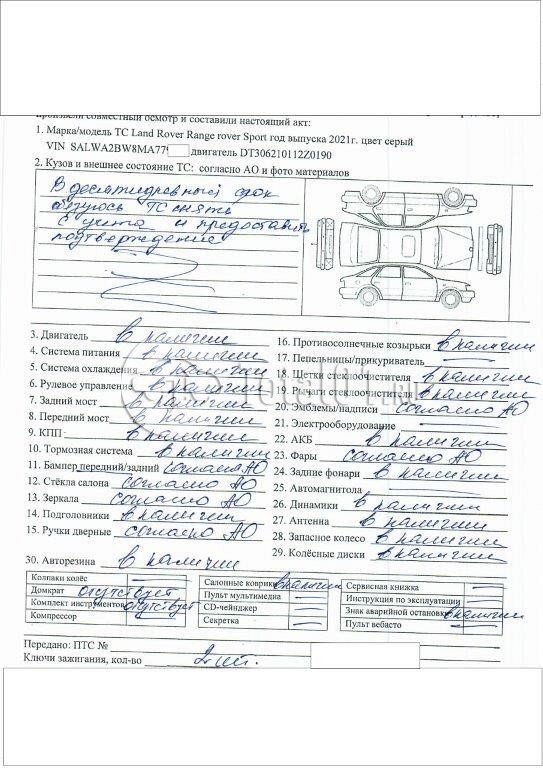 произвели совместный осмотр и составили настоящий акт:
1. Марка/модель ТС Land Rover Range rover Sport год выпуска 2021г. цвет серый
VIN SALWA2BW8MA77 двигатель DT306210112Z0190
2. Кузов и внешнее состояние ТС: согласно АО и фото материалов
В десятидневный срок
обязуюсь ТС снять
с учета и предоставить
подтверждение
3. Двигатель в наличии
4. Система питания в наличии
5. Система охлаждения в наличии
6. Рулевое управление в наличии
7. Задний мост в наличии
8. Передний мост в наличии
9. КПП в наличии
10. Тормозная система в наличии
11. Бампер передний/задний согласно АО
12. Стёкла салона согласно АО
13. Зеркала согласно АО
14. Подголовники в наличии
15. Ручки дверные согласно АО
16. Противосолнечные козырьки в наличии
17. Пепельницы/прикуриватель
18. Щетки стеклоочистителя в наличии
19. Рычаги стеклоочистителя в наличии
20. Эмблемы/надписи согласно АО
21. Электрооборудование
22. АКБ в наличии
23. Фары согласно АО
24. Задние фонари в наличии
25. Автомагнитола
26. Динамики в наличии
27. Антенна в наличии
28. Запасное колесо в наличии
29. Колёсные диски в наличии
30. Авторезина в наличии
Колпаки колёс
Домкрат отсутствует
Комплект инструментов отсутствует
Компрессор
Салонные коврики в наличии
Пульт мультимедиа
CD-чейнджер
Секретка
Сервисная книжка
Инструкция по эксплуатации
Знак аварийной остановки в наличии
Пульт вебасто
Передано: ПТС №
Ключи зажигания, кол-во 2 шт.